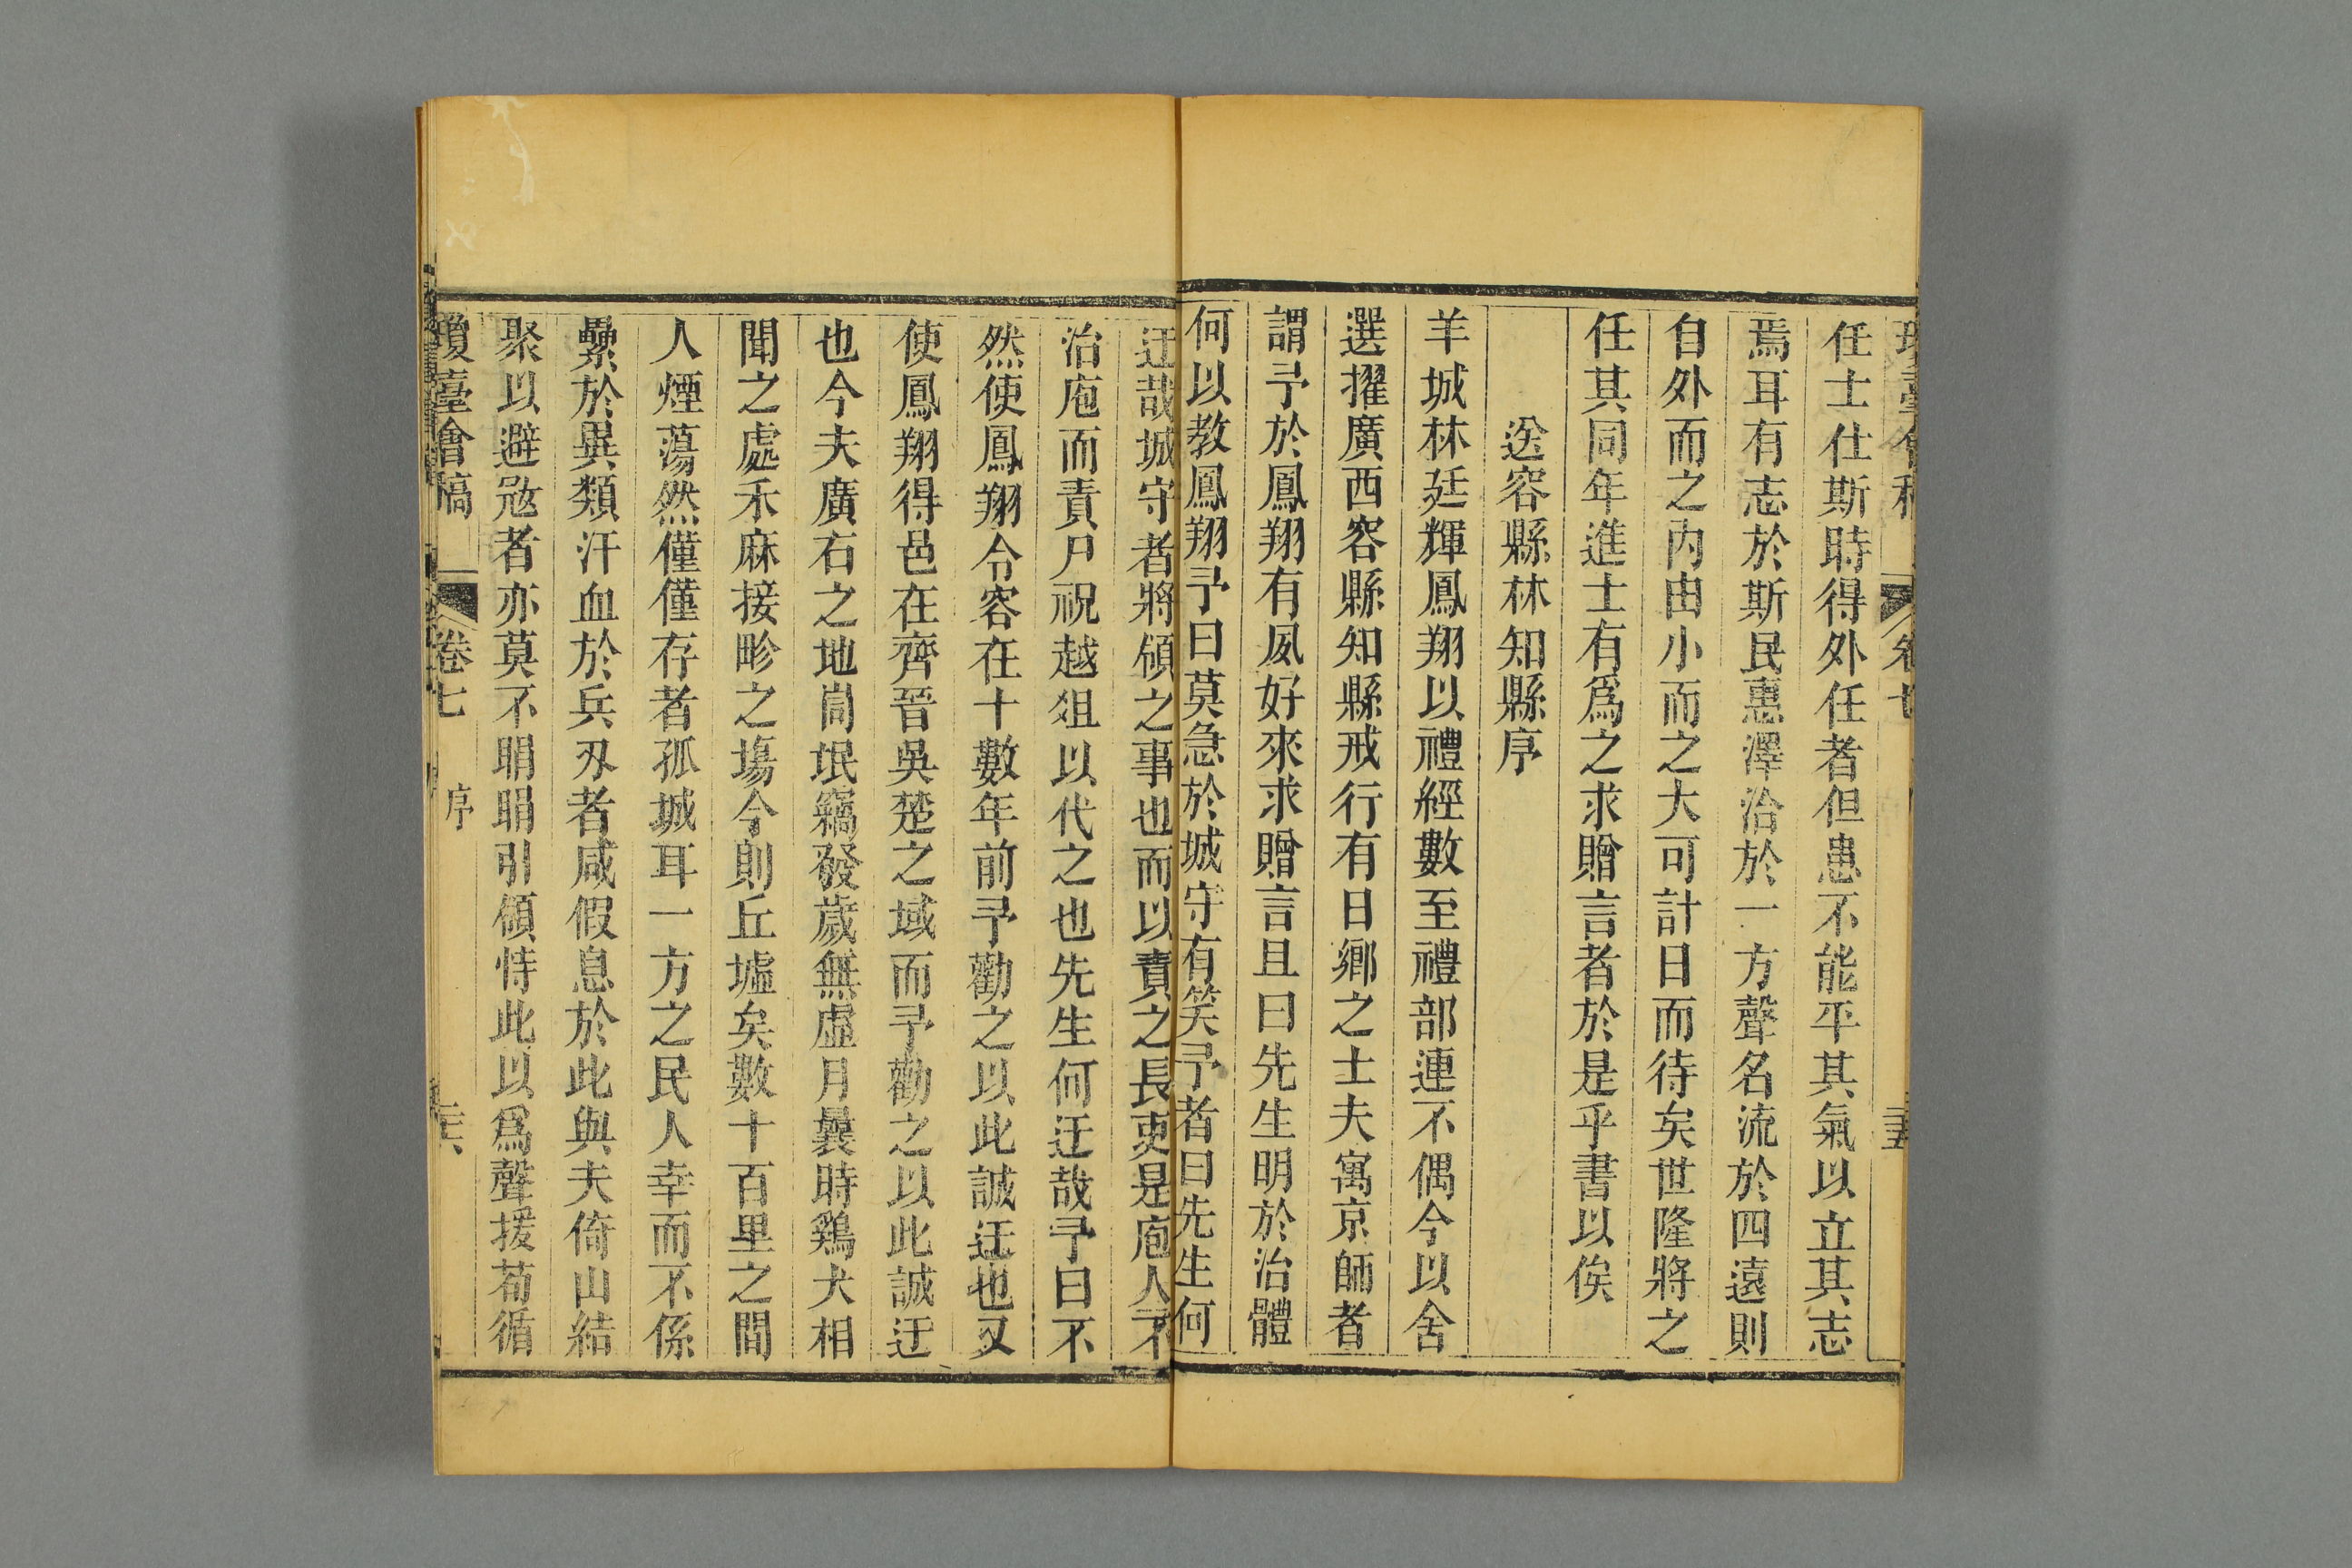 任士仕斯時得外任者但患不能平其氣以立其志
焉耳有志於斯民惠澤洽於一方聲名流於四遠則
自外而之內由小而之大可計日而待矣世隆將之
任其同年進士有爲之求贈言者於是乎書以俟
送容縣林知縣序
羊城林廷輝鳳翔以禮經數至禮部連不偶今以舍
選擢廣西容縣知縣戒行有日鄉之士夫寓京師者
謂予於鳳翔有夙好來求贈言且曰先生明於治體
何以教鳳翔予曰莫急於城守有笑予者曰先生何
迂哉城守者將領之事也而以責之長吏是庖人不
治庖而責尸祝越俎以代之也先生何迂哉予曰不
然使鳳翔令容在十數年前予勸之以此誠迂也又
使鳳翔得邑在齊晉吳楚之域而予勸之以此誠迂
也今夫廣右之地峝氓竊發歲無虛月曩時鷄犬相
聞之處禾麻接畛之塲今則丘墟矣數十百里之間
人煙蕩然僅僅存者孤城耳一方之民人幸而不係
纍於異類汗血於兵刄者咸假息於此與夫倚山結
聚以避冦者亦莫不睊睊引領恃此以爲聲援苟循
瓊臺會稿 卷七 序 三六